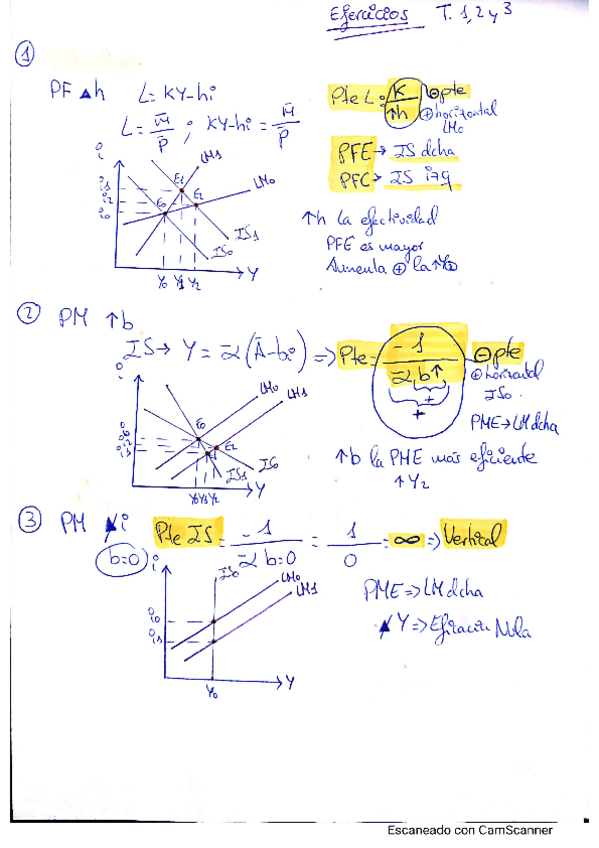 Ejercicios T. 1, 2 y 3
①
PF ▲h L = KY-hi
L = M̄/P̄ ; KY-hi = M̄/P̄
Pte L = K/↑h ⊖pte
⊕horizontal
LM₀
PFE → IS dcha
PFC → IS izq
↑h La efectividad
PFE es mayor
Aumenta ⊕ la ↑Y₂
i
i₁
i₂
i₀
LM₁
LM₀
E₁
E₂
E₀
IS₁
IS₀
Y₀ Y₁ Y₂
Y
② PM ↑b
IS → Y = α(Ā-bi) => Pte = -1/α b↑ ⊖pte
+
+
⊕horizontal
IS₀.
PME → LM dcha
↑b la PME más eficiente
↑Y₂
i
i₀
i₂
i₁
LM₀
LM₁
E₀
E₂
E₁
IS₀
IS₁
Y₀ Y₁ Y₂
Y
③ PM i
b=0
Pte IS = -1/α b=0 = 1/0 = ∞ => Vertical
PME => LM dcha
Y => Eficacia Nula
i
IS₀
LM₀
LM₁
i₀
i₁
Y₀
Y
Escaneado con CamScanner